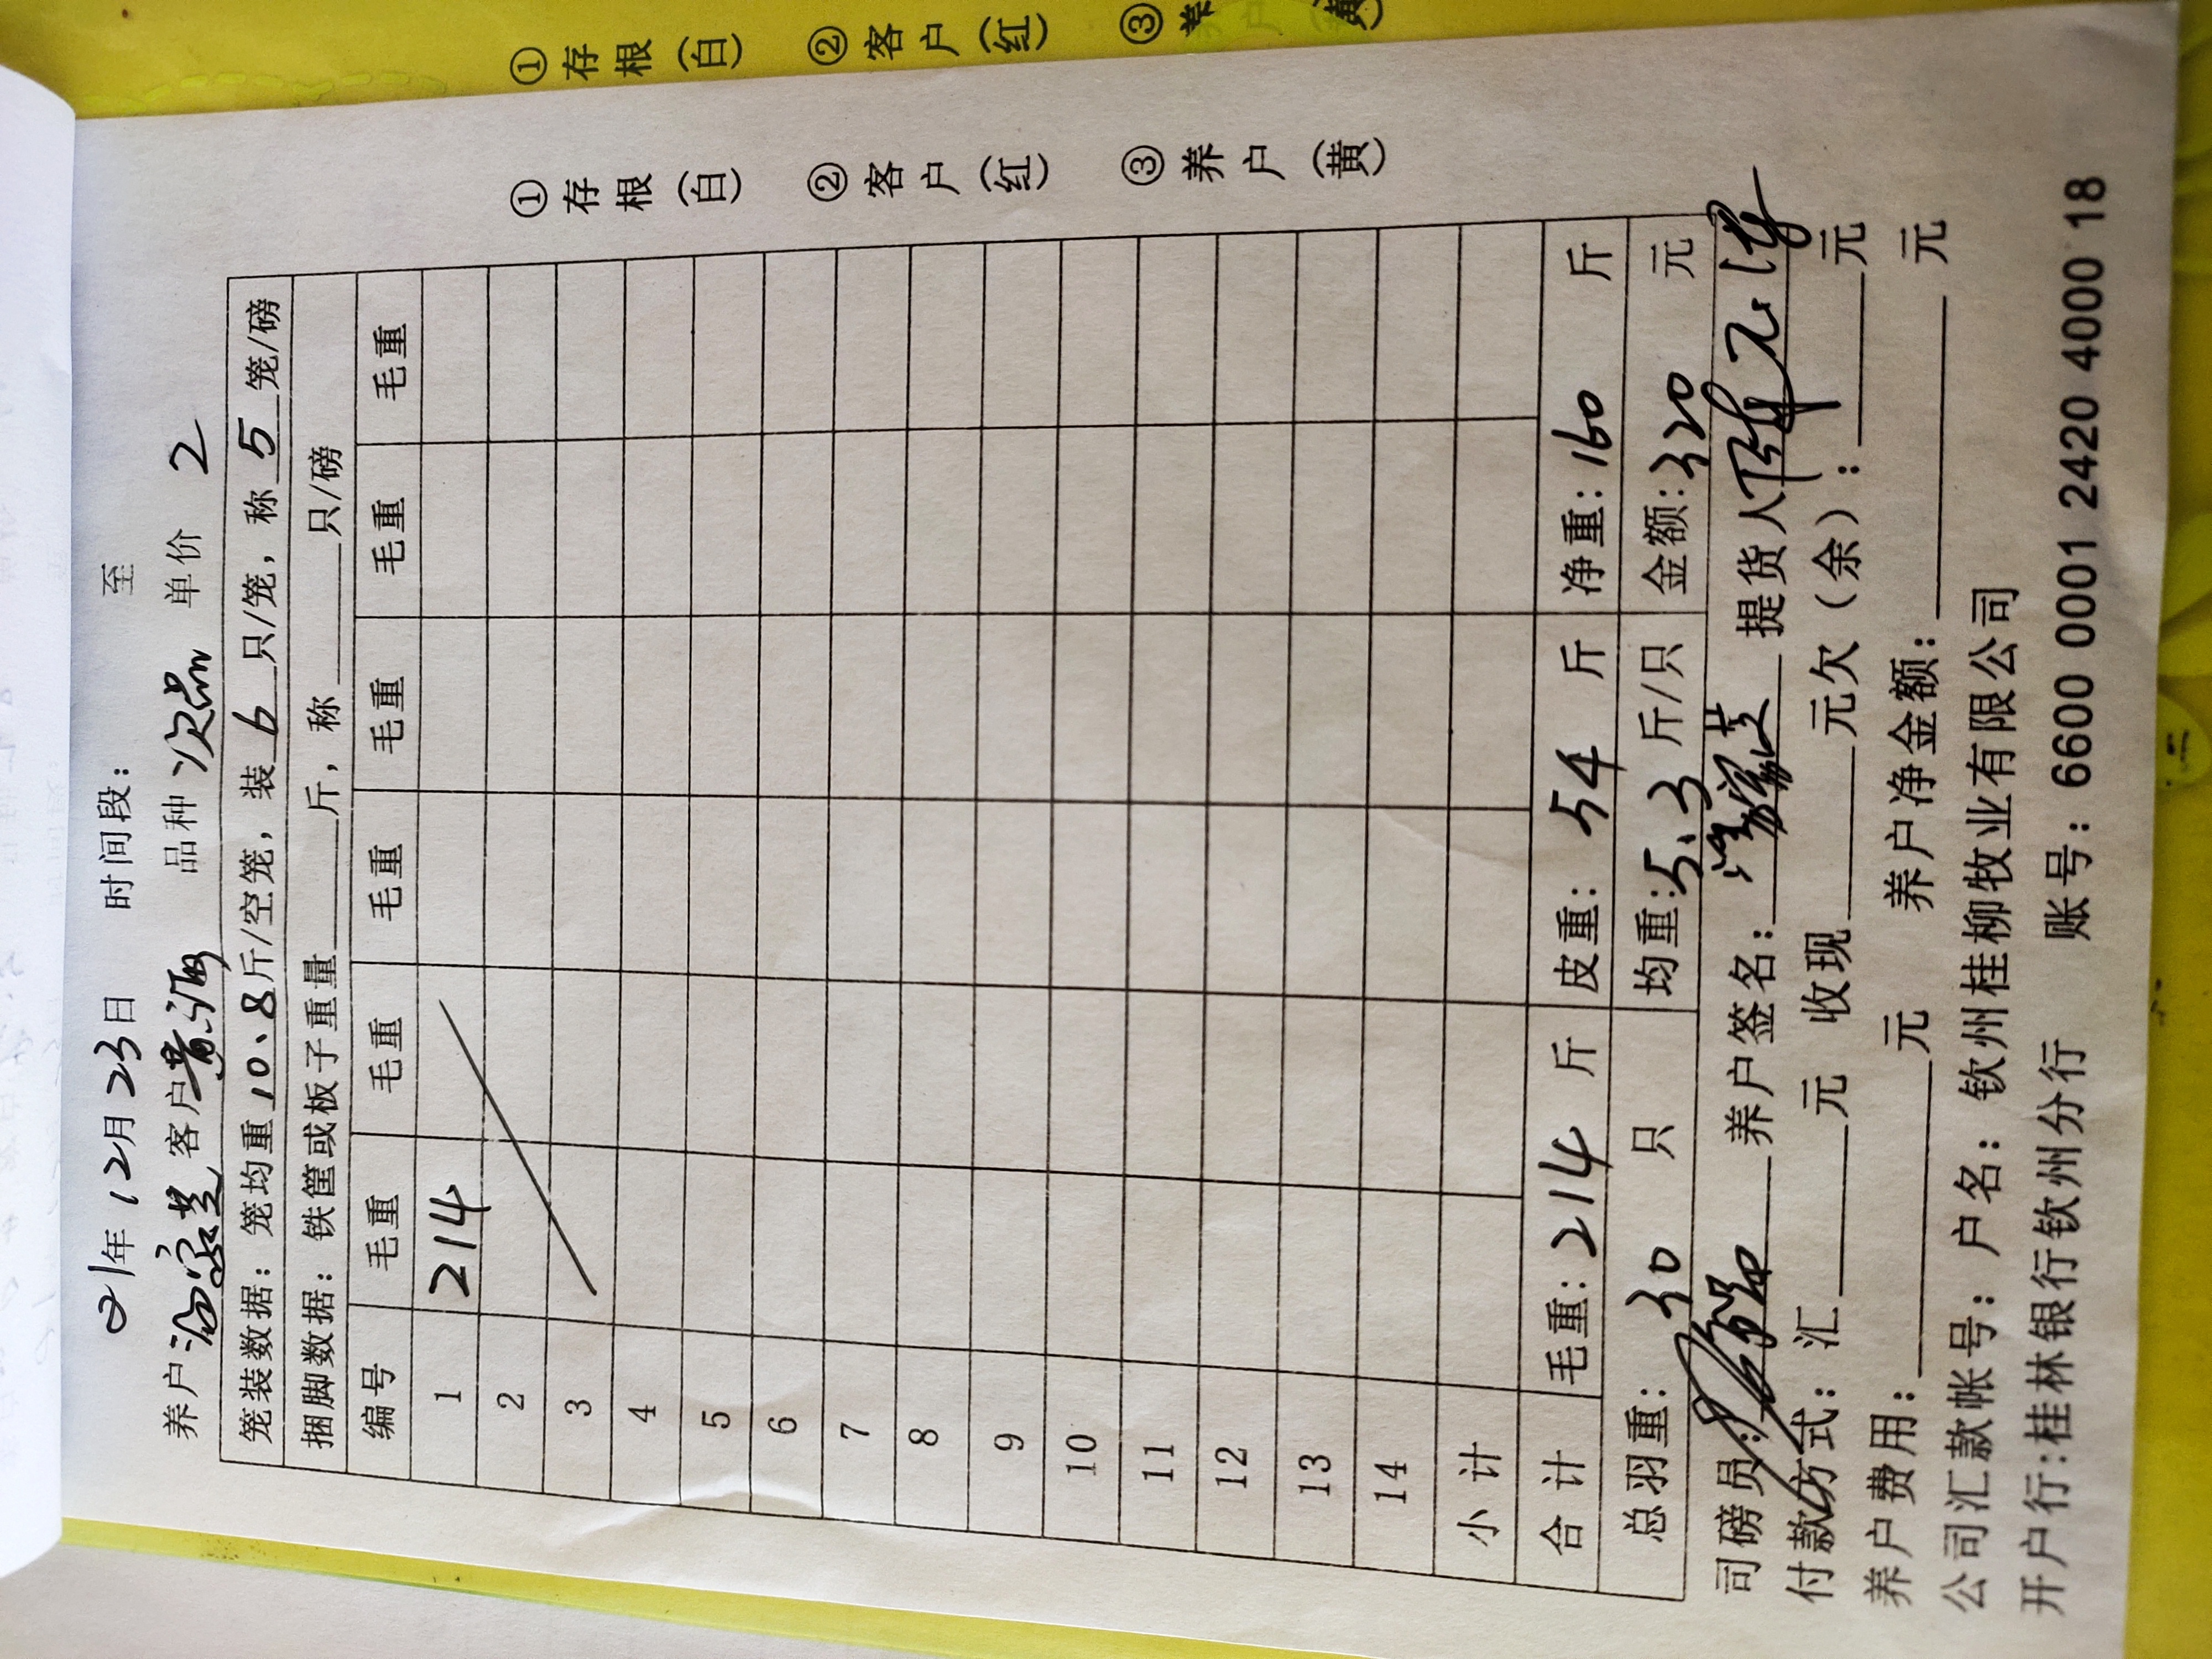 21年12月23日 时间段： 至
养户 客户 黄海 品种 次品 单价 2
笼装数据：笼均重10.8斤/空笼，装6只/笼，称5笼/磅
捆脚数据：铁筐或板子重量 斤，称 只/磅
编号 毛重 毛重 毛重 毛重 毛重 毛重
1 214
2
3
4
5
6
7
8
9
10
11
12
13
14
小计
合计 毛重：214 斤 皮重：54 斤 净重：160 斤
总羽重：30 只 均重：5.3 斤/只 金额：320 元
司磅员： 养户签名： 提货人
付款方式：汇 元 收现 元欠（余）： 元
养户费用： 元 养户净金额： 元
公司汇款帐号：户名：钦州桂柳牧业有限公司
开户行：桂林银行钦州分行 账号：6600 0001 2420 4000 18
①存根（白） ②客户（红） ③养户（黄）
①存根（白） ②客户（红） ③养户（黄）